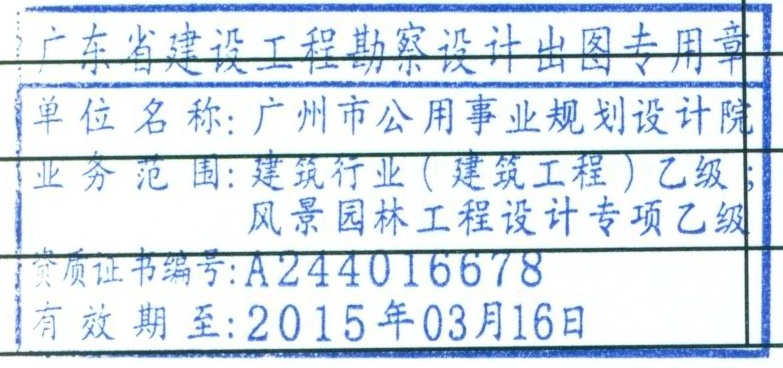 广东省建设工程勘察设计出图专用章
单位名称:广州市公用事业规划设计院
业务范围:建筑行业(建筑工程)乙级;
风景园林工程设计专项乙级
资质证书编号:A244016678
有效期至:2015年03月16日